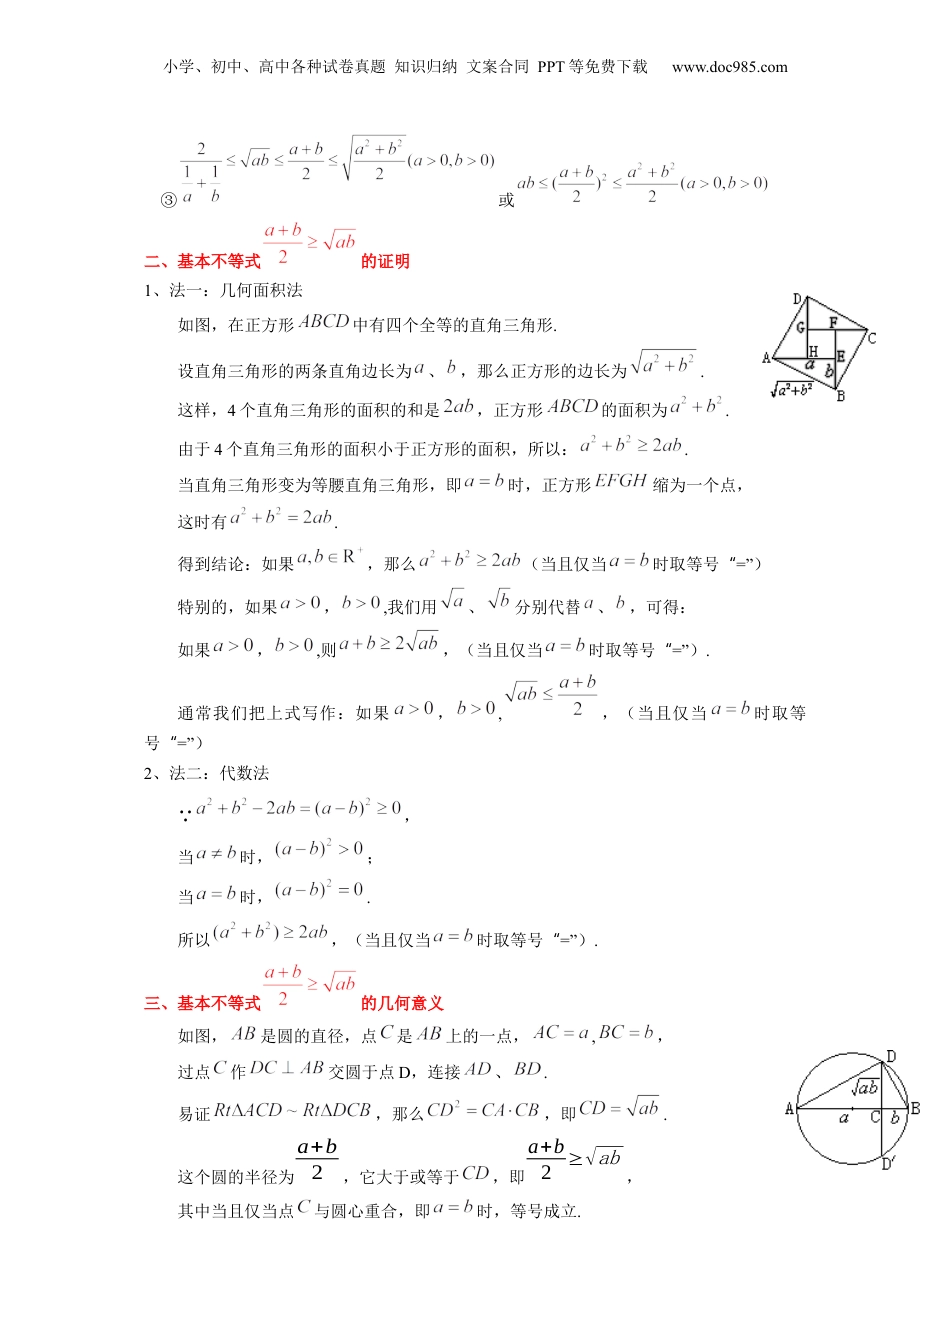 小学、初中、高中各种试卷真题 知识归纳 文案合同 PPT等免费下载 www.doc985.com
③ 2/(1/a+1/b) ≤ √ab ≤ (a+b)/2 ≤ √((a²+b²)/2) (a>0,b>0) 或 ab ≤ ((a+b)/2)² ≤ (a²+b²)/2 (a>0,b>0)
二、基本不等式 (a+b)/2 ≥ √ab 的证明
1、法一：几何面积法
如图，在正方形ABCD中有四个全等的直角三角形.
设直角三角形的两条直角边长为a、b，那么正方形的边长为√(a²+b²).
这样，4个直角三角形的面积的和是2ab，正方形ABCD的面积为a²+b².
由于4个直角三角形的面积小于正方形的面积，所以：a²+b²≥2ab.
当直角三角形变为等腰直角三角形，即a=b时，正方形EFGH缩为一个点，
这时有a²+b²=2ab.
得到结论：如果a,b∈R⁺，那么a²+b²≥2ab（当且仅当a=b时取等号“=”）
特别的，如果a>0，b>0,我们用√a、√b分别代替a、b，可得：
如果a>0，b>0,则a+b≥2√ab，（当且仅当a=b时取等号“=”）.
通常我们把上式写作：如果a>0，b>0, √ab≤(a+b)/2，（当且仅当a=b时取等
号“=”）
D
G F C
A H E
a b
√(a²+b²) B
2、法二：代数法
∵a²+b²-2ab=(a-b)²≥0，
当a≠b时，(a-b)²>0；
当a=b时，(a-b)²=0.
所以(a²+b²)≥2ab，（当且仅当a=b时取等号“=”）.
三、基本不等式 (a+b)/2 ≥ √ab 的几何意义
如图，AB是圆的直径，点C是AB上的一点，AC=a,BC=b，
过点C作DC⊥AB交圆于点D，连接AD、BD.
易证RtΔACD~RtΔDCB，那么CD²=CA·CB，即CD=√ab.
这个圆的半径为(a+b)/2，它大于或等于CD，即(a+b)/2≥√ab，
其中当且仅当点C与圆心重合，即a=b时，等号成立.
D
√ab
A a C b B
D′